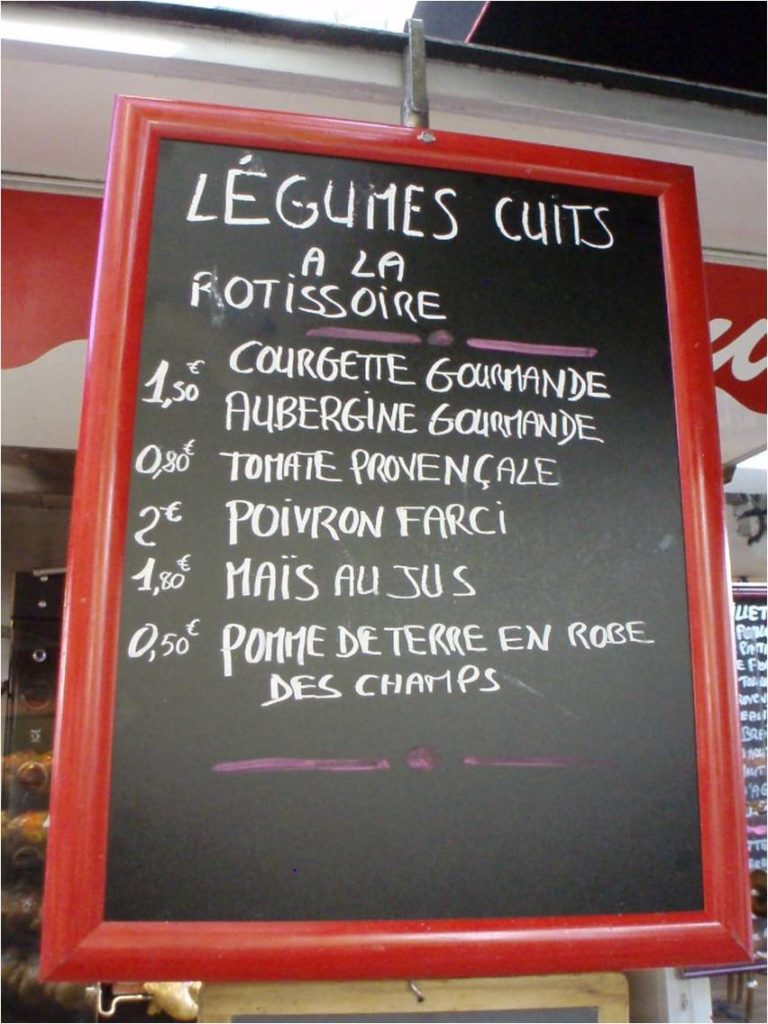 LÉGUMES CUITS
A LA
ROTISSOIRE
1,50€ COURGETTE GOURMANDE
AUBERGINE GOURMANDE
0,80€ TOMATE PROVENÇALE
2€ POIVRON FARCI
1,80€ MAÏS AU JUS
0,50€ POMME DE TERRE EN ROBE
DES CHAMPS